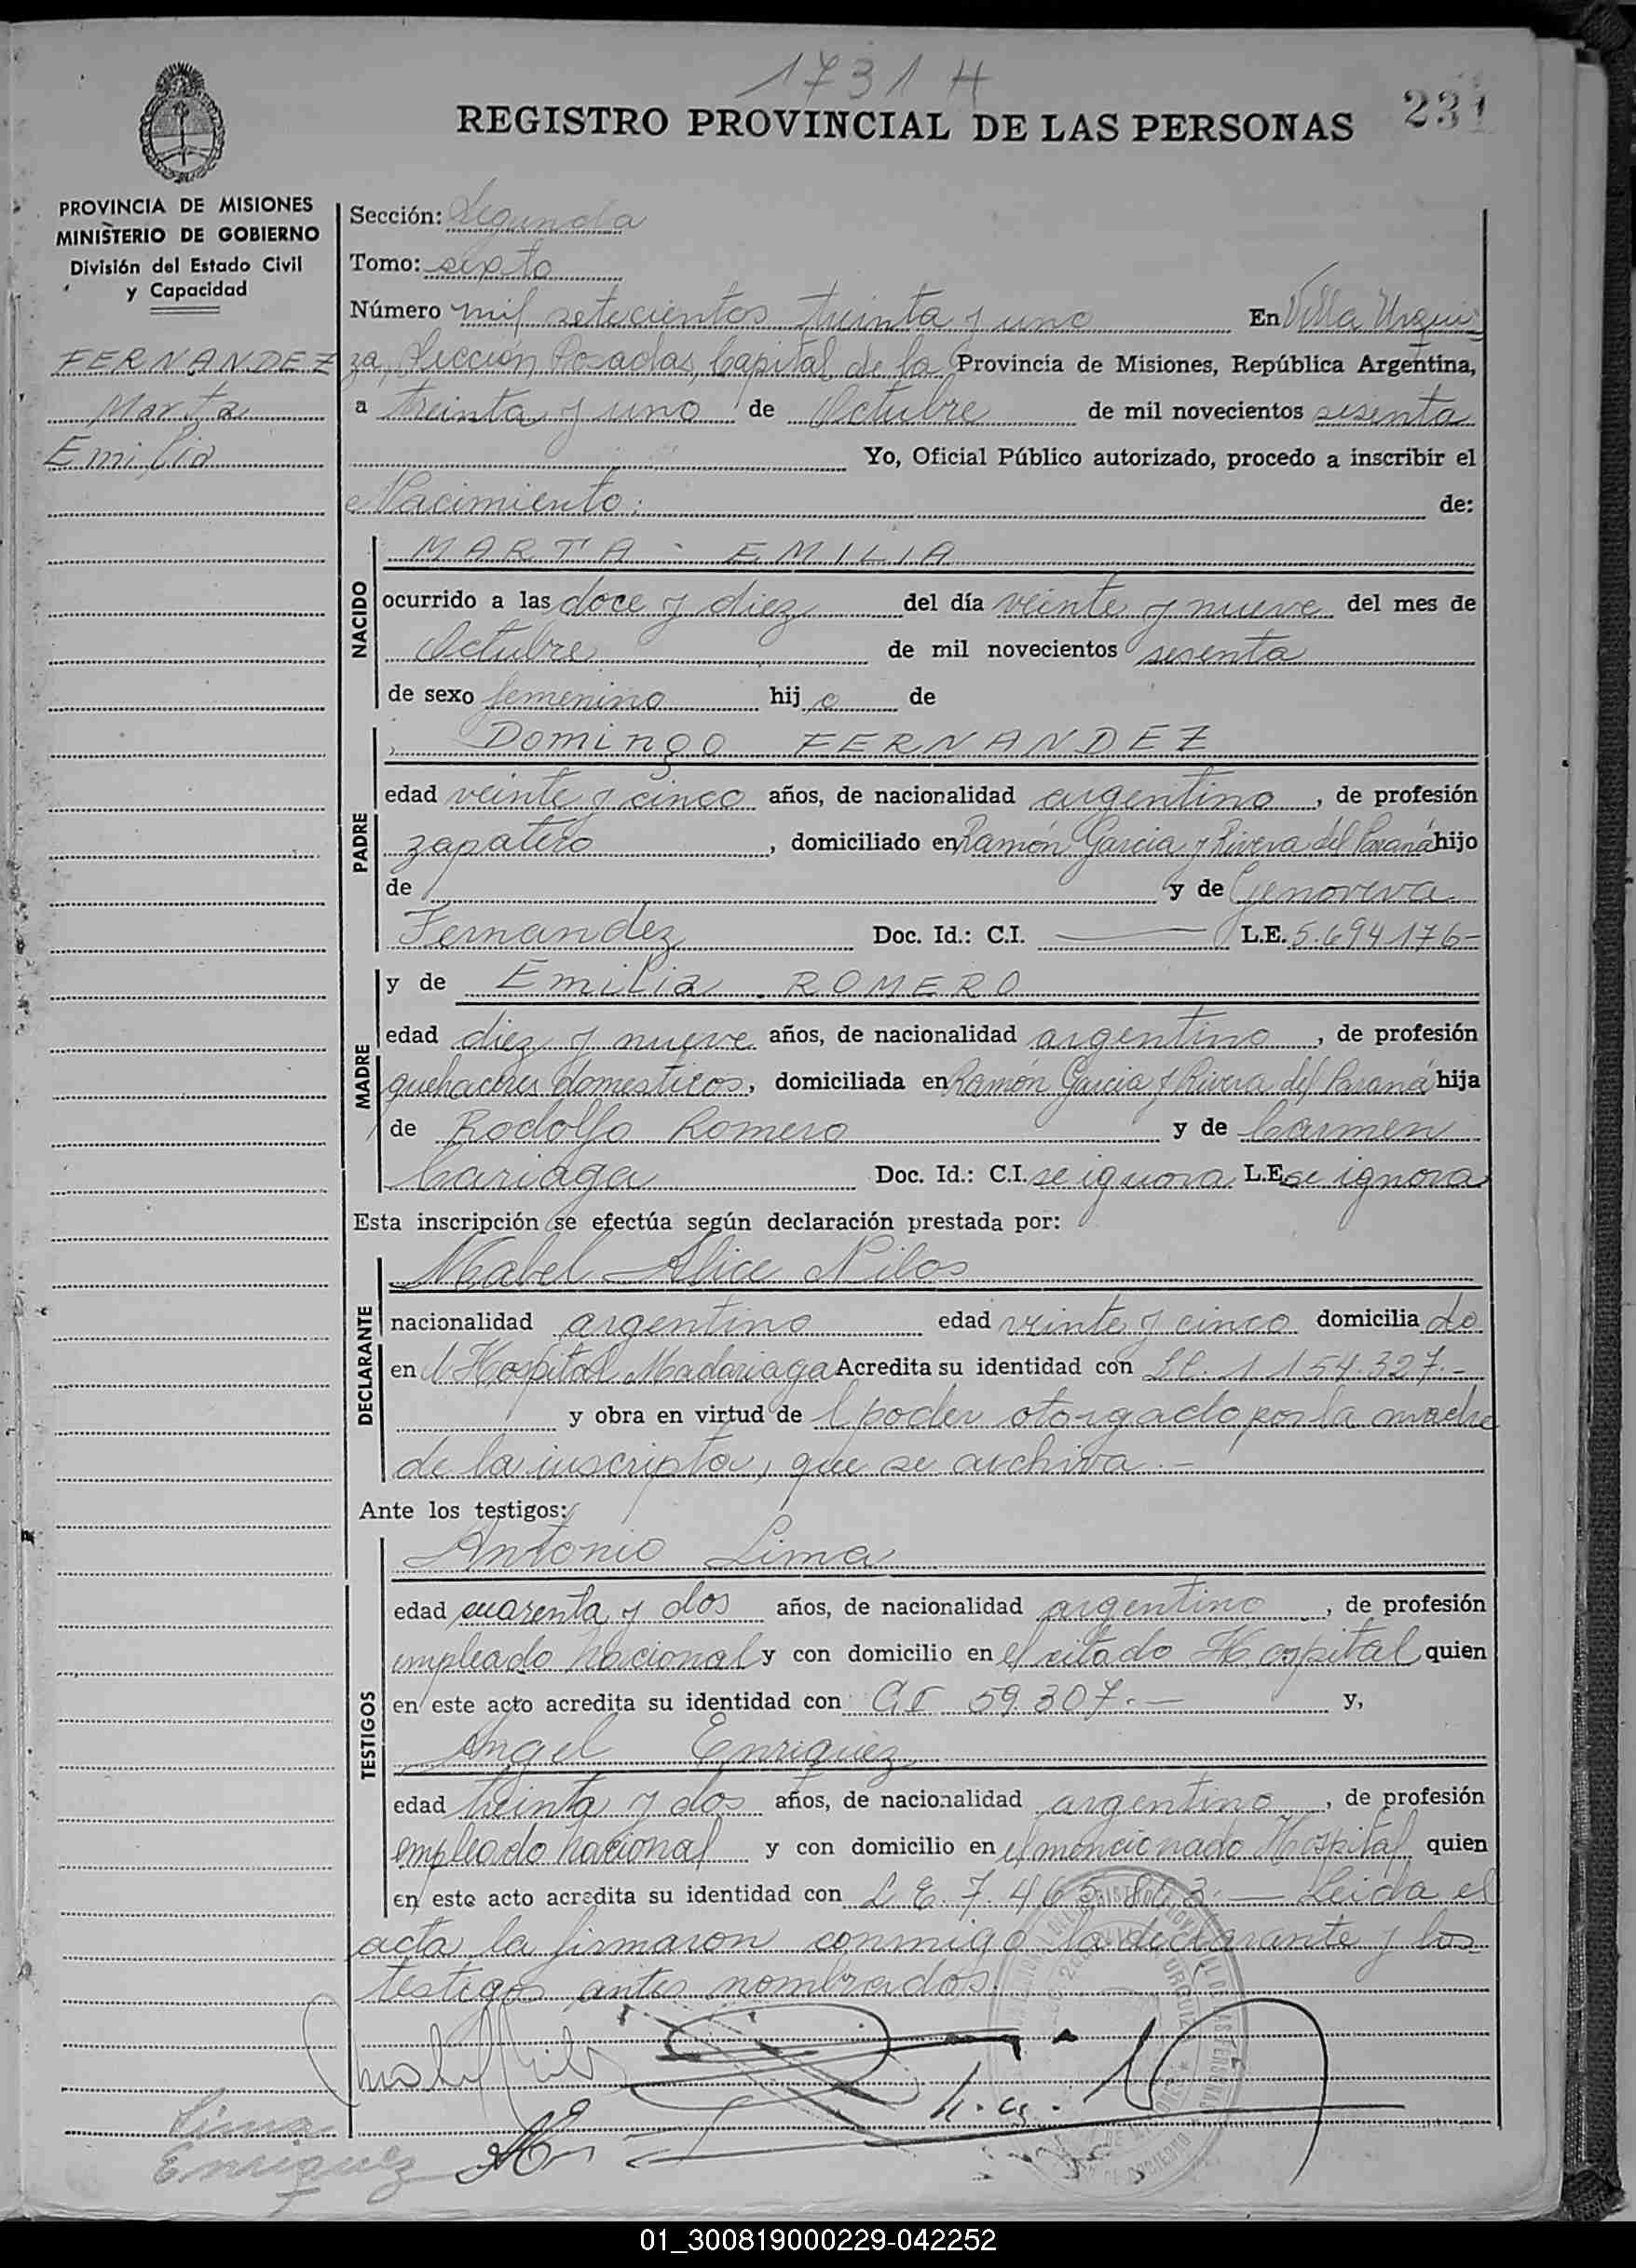 1731 H
231
REGISTRO PROVINCIAL DE LAS PERSONAS
PROVINCIA DE MISIONES
MINISTERIO DE GOBIERNO
División del Estado Civil
y Capacidad
FERNANDEZ
Marta
Emilia
Sección: Segunda
Tomo: sexto
Número mil setecientos treinta y uno En Villa Urqui
za, Sección Posadas, Capital de la Provincia de Misiones, República Argentina,
a treinta y uno de Octubre de mil novecientos sesenta
Yo, Oficial Público autorizado, procedo a inscribir el
Nacimiento: de:
NACIDO
MARTA - EMILIA
ocurrido a las doce y diez del día veinte y nueve del mes de
Octubre de mil novecientos sesenta
de sexo femenino hij a de
PADRE
Domingo FERNANDEZ
edad veinte y cinco años, de nacionalidad argentino, de profesión
zapatero, domiciliado en Ramón Garcia y Rivera del Paraná hijo
de y de Genoveva
Fernandez Doc. Id.: C.I. — L.E. 5.694.176-
MADRE
y de Emilia ROMERO
edad diez y nueve años, de nacionalidad argentino, de profesión
quehaceres domesticos, domiciliada en Ramón Garcia y Rivera del Paraná hija
de Rodolfo Romero y de Carmen
Cariaga Doc. Id.: C.I. se ignora L.E. se ignora
Esta inscripción se efectúa según declaración prestada por:
DECLARANTE
Mabel Alice Nilos
nacionalidad argentino edad veinte y cinco domicilia do
en l Hospital Madariaga Acredita su identidad con LC. 1.154.327.-
y obra en virtud de l poder otorgado por la madre
de la inscripta, que se archiva.-
Ante los testigos:
TESTIGOS
Antonio Lima
edad cuarenta y dos años, de nacionalidad argentino, de profesión
empleado nacional y con domicilio en el citado Hospital quien
en este acto acredita su identidad con C.I 59.307.- y,
Angel Enriquez
edad treinta y dos años, de nacionalidad argentino, de profesión
empleado nacional y con domicilio en el mencionado Hospital quien
en este acto acredita su identidad con L.E. 7.465.863.- Leida el
acta la firmaron conmigo la declarante y los
testigos antes nombrados.
Lima
Enriquez
01_300819000229-042252